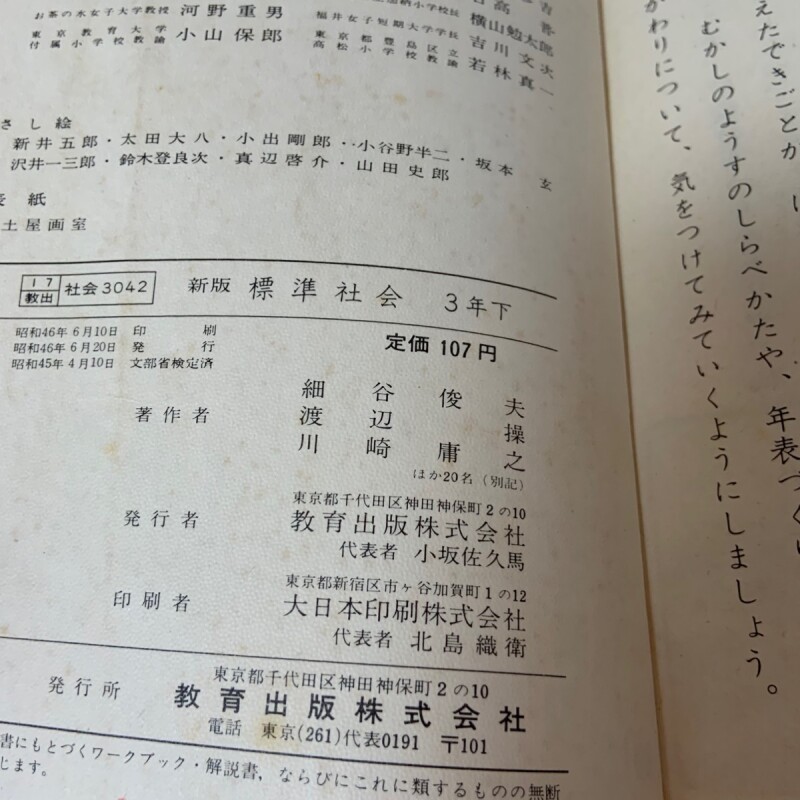 お茶の水女子大学教授 河野重男
東京教育大学
付属小学校教諭 小山保郎
横山勉太郎
福井女子短期大学学長 吉川文次
東京都豊島区立
高松小学校教諭 若林真一
さし絵
新井五郎・太田大八・小出剛郎・小谷野半二・坂本 玄
沢井一三郎・鈴木登良次・真辺啓介・山田史郎
表紙
土屋画室
17
教出 社会3042 新版 標準社会 3年下
昭和46年6月10日 印刷
昭和46年6月20日 発行
昭和45年4月10日 文部省検定済
定価 107円
著作者
細谷俊夫
渡辺操
川崎庸之
ほか20名(別記)
発行者
東京都千代田区神田神保町2の10
教育出版株式会社
代表者 小坂佐久馬
印刷者
東京都新宿区市ヶ谷加賀町1の12
大日本印刷株式会社
代表者 北島織衛
発行所
東京都千代田区神田神保町2の10
教育出版株式会社
電話 東京(261)代表0191 〒101
書にもとづくワークブック・解説書，ならびにこれに類するものの無断
じます。
えたできごとが
むかしのようすのしらべかたや、年表づく
かわりについて、気をつけてみていくようにしましょう。